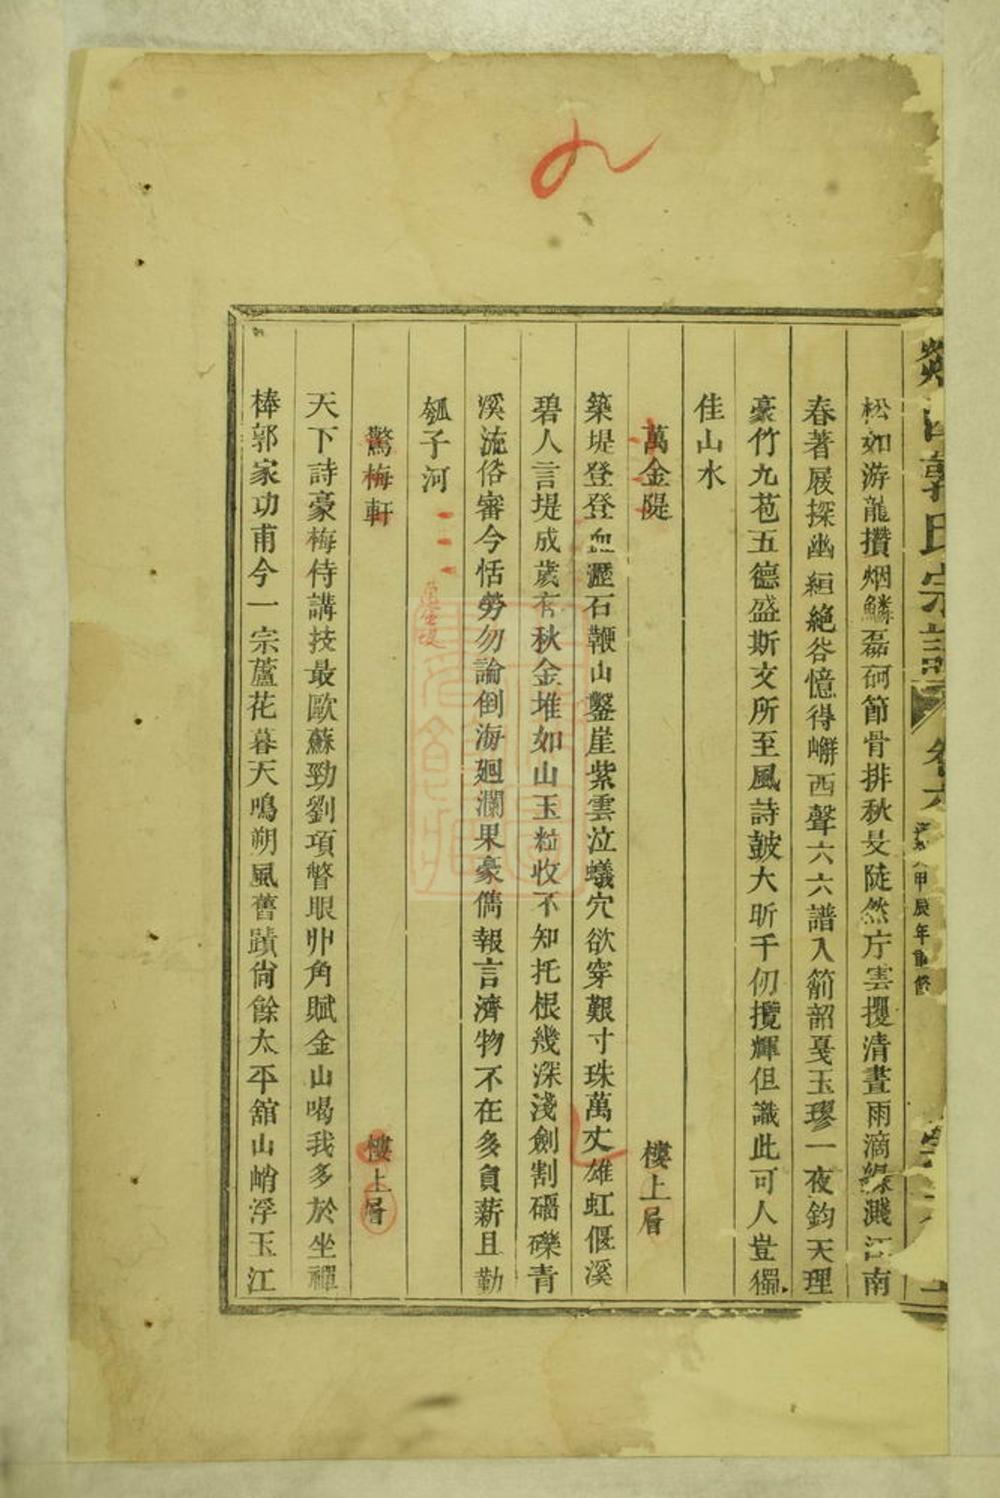 郭氏宗譜 卷六 甲辰年重修
松如游龍攢烟鱗磊砢節骨排秋旻陡然庁雲攫清晝雨滴緑濺江南
春著屐探幽絙絶谷憶得嶰西聲六六譜入箾韶戛玉璆一夜鈞天理
豪竹九苞五德盛斯文所至風詩鼓大昕千仞攬輝但識此可人豈獨
佳山水
萬金隄 樓上層
築堤登登血瀝石鞭山鑿崖紫雲泣蟻穴欲穿艱寸珠萬丈雄虹偃溪
碧人言堤成歲有秋金堆如山玉粒收不知托根幾深淺劍割礌礫青
溪流俗審今恬勞勿論倒海廻瀾果豪儁報言濟物不在多負薪且勤
瓠子河
驚梅軒 樓上層
天下詩豪梅侍講技最歐蘇勁劉項瞥眼丱角賦金山喝我多於坐禪
棒郭家功甫今一宗蘆花暮天鳴朔風舊蹟尙餘太平舘山峭浮玉江